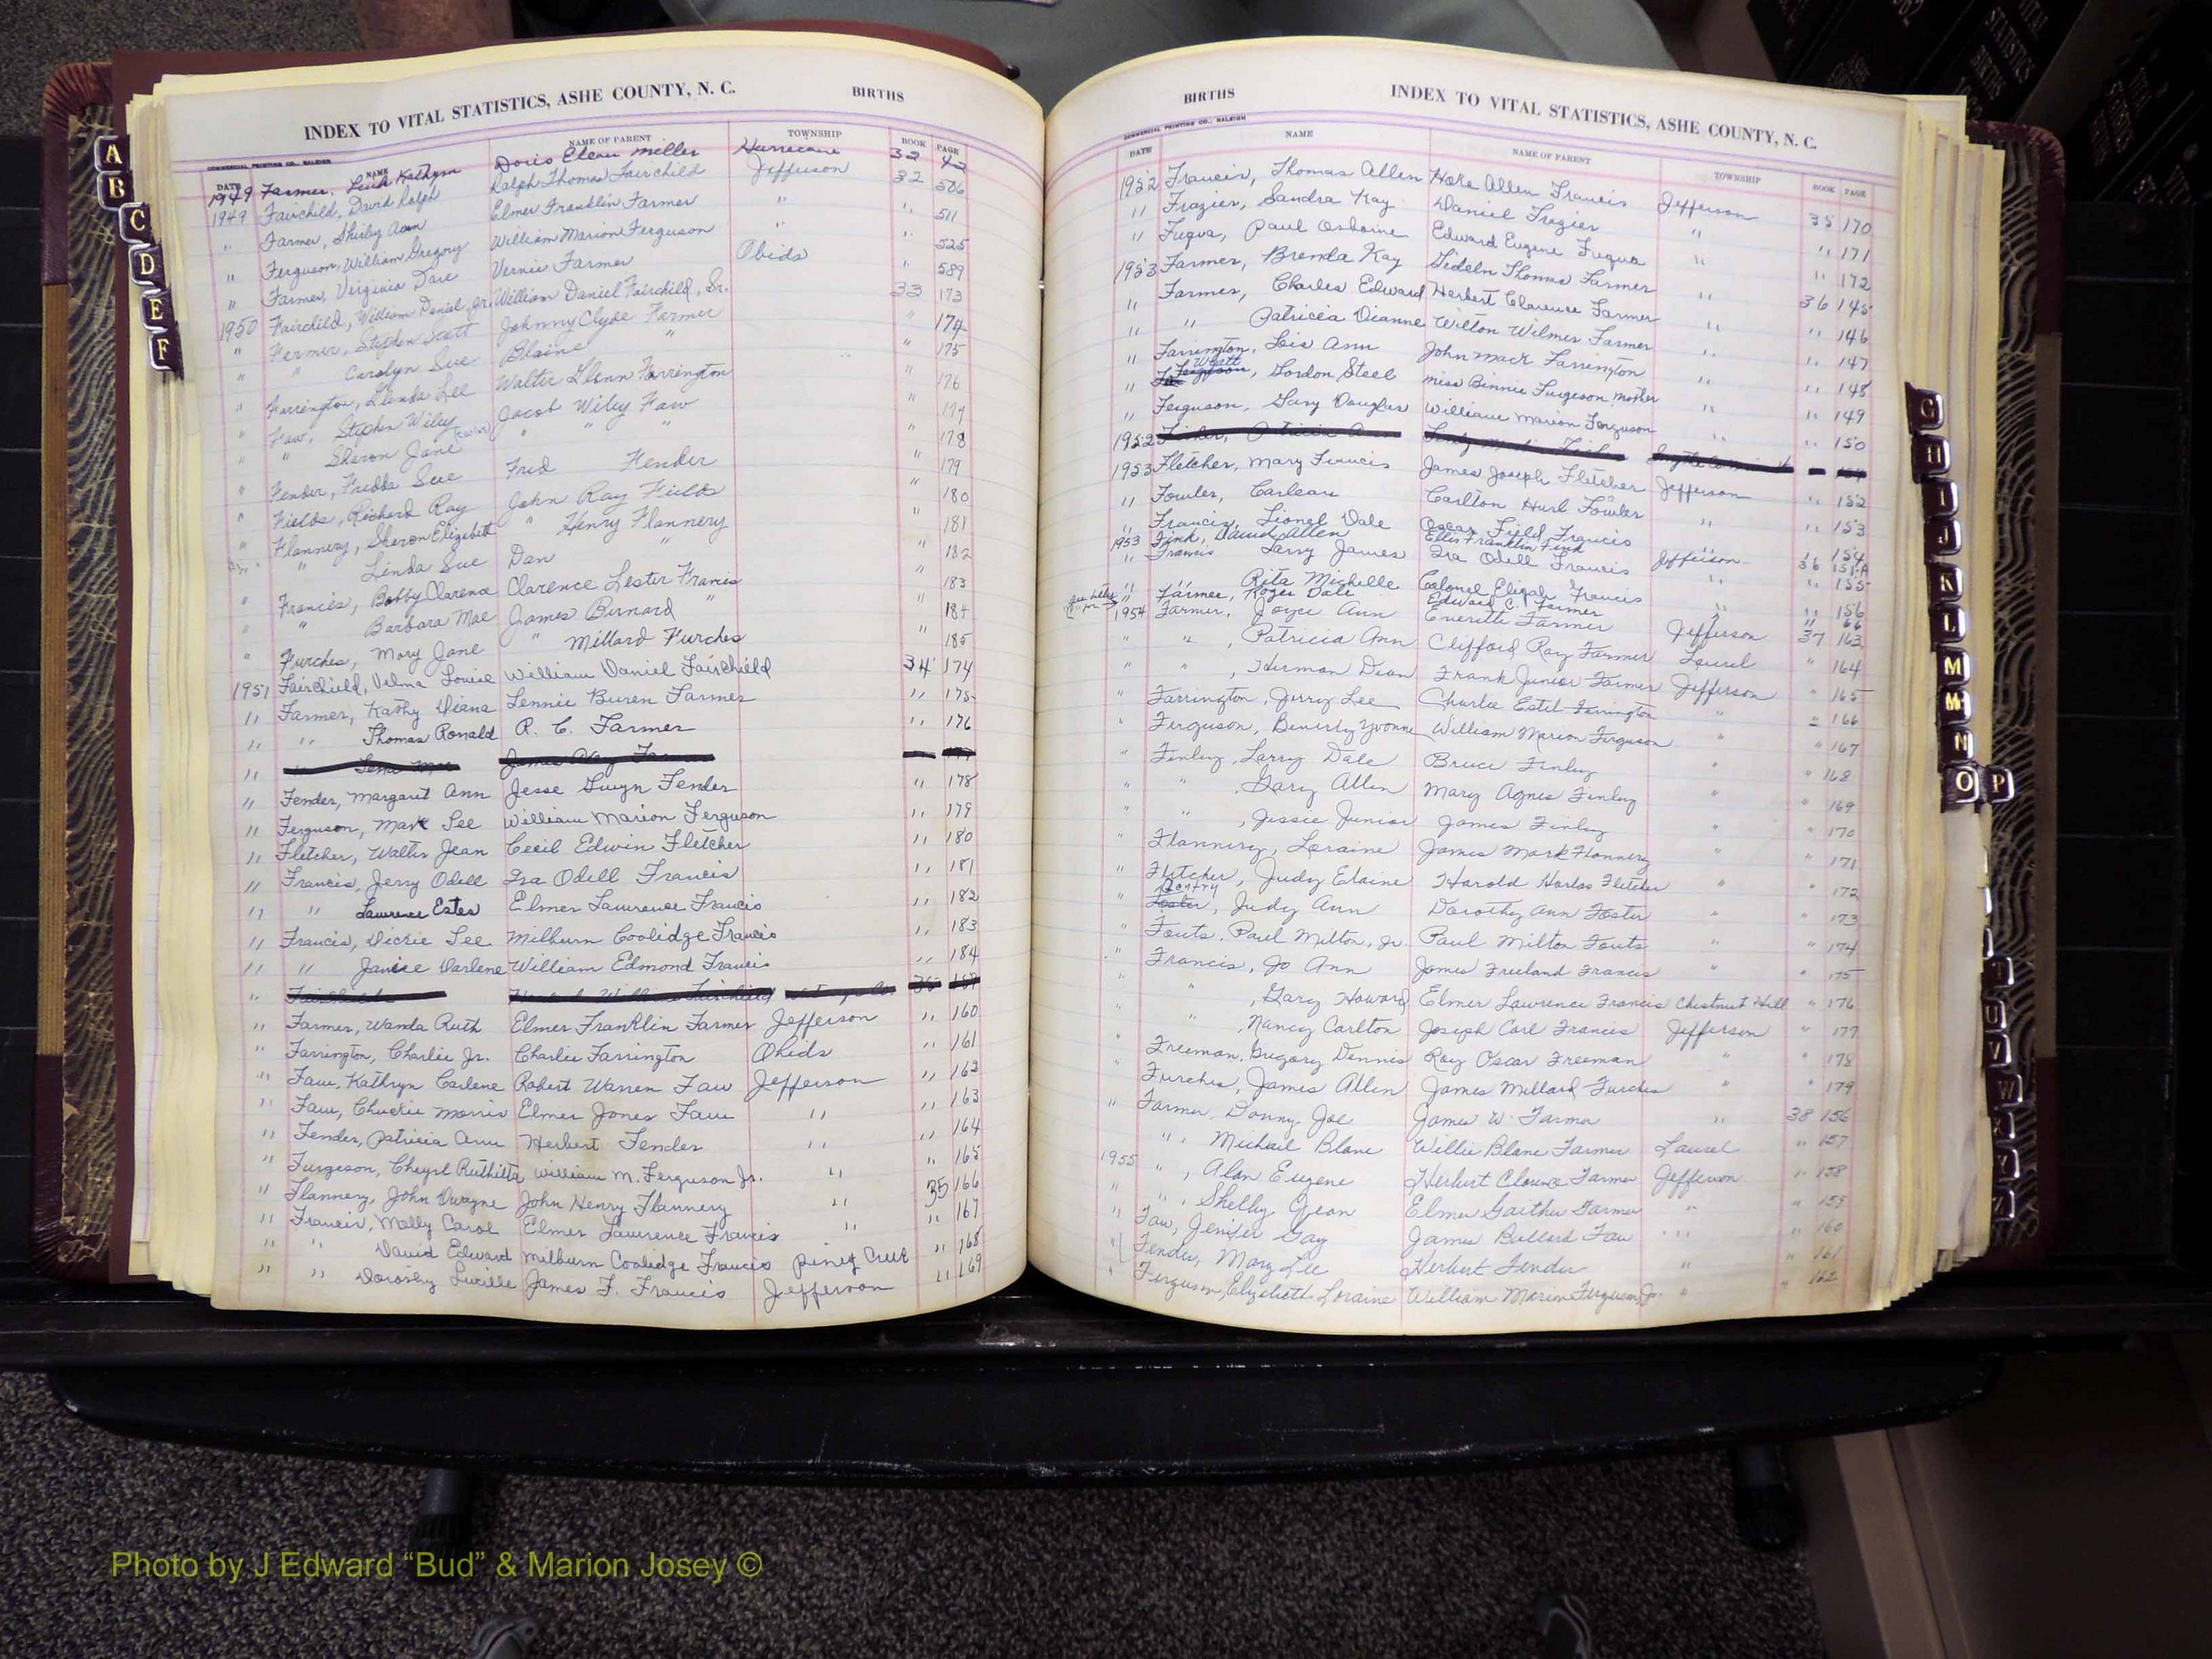 INDEX TO VITAL STATISTICS, ASHE COUNTY, N. C. BIRTHS
COMMERCIAL PRINTING CO., RALEIGH
DATE NAME NAME OF PARENT TOWNSHIP BOOK PAGE
1949 Farmer, Kathryn Doris Elean Miller Hurricane 32 42
1949 Fairchild, David Ralph Ralph Thomas Fairchild Jefferson 32 506
" Farmer, Shirly Ann Elmer Franklin Farmer " " 511
" Ferguson, William Gregory William Marion Ferguson " " 525
" Farmer, Virginia Dare Vernie Farmer Obids " 589
1950 Fairchild, William Daniel, Jr. William Daniel Fairchild, Sr. 33 173
" Farmer, Stephen Scott Johnny Clyde Farmer " 174
" " Carolyn Sue Blaine " " 175
" Farrington, Glenda Lee Walter Glenn Farrington " 176
" Faw, Stephen Wiley Jacob Wiley Faw " 177
" " Sharon Jane " " " " 178
" Fender, Fredda Sue Fred Fender " 179
" Fields, Richard Ray John Ray Fields " 180
" Flannery, Sharon Elizabeth " Henry Flannery " 181
" Linda Sue Dan " " 182
" Francis, Bobby Clarence Clarence Lester Francis " 183
" " Barbara Mae James Bernard " " 184
" Furches, Mary Jane " Millard Furches " 185
1951 Fairchild, Velma Louise William Daniel Fairchild 34 174
" Farmer, Kathy Diana Lennie Buren Farmer " 175
" " Thomas Ronald R. C. Farmer " 176
"
" Fender, Margaret Ann Jesse Gwyn Fender " 178
" Ferguson, Mark Lee William Marion Ferguson " 179
" Fletcher, Walter Jean Cecil Edwin Fletcher " 180
" Francis, Jerry Odell Ira Odell Francis " 181
" " Lawrence Estes Elmer Lawrence Francis " 182
" Francis, Dickie Lee Milburn Coolidge Francis " 183
" " Janice Darlene William Edmond Francis " 184
" Fairchild 35
" Farmer, Wanda Ruth Elmer Franklin Farmer Jefferson " 160
" Farrington, Charlie Jr. Charlie Farrington Obids " 161
" Faw, Kathryn Carlene Robert Warren Faw Jefferson " 162
" Faw, Chuckie Morris Elmer Jones Faw " " 163
" Fender, Patricia Ann Herbert Fender " " 164
" Furgeson, Cheyrl Ruthitta William M. Ferguson Jr. " " 165
" Flannery, John Dwayne John Henry Flannery " 35 166
" Francis, Molly Carol Elmer Lawrence Francis " " 167
" " David Edward Milburn Coolidge Francis Piney Creek " 168
" " Dorothy Lucille James F. Francis Jefferson " 169
BIRTHS INDEX TO VITAL STATISTICS, ASHE COUNTY, N. C.
COMMERCIAL PRINTING CO., RALEIGH
DATE NAME NAME OF PARENT TOWNSHIP BOOK PAGE
1952 Francis, Thomas Allen Hoke Allen Francis Jefferson 35 170
" Frazier, Sandra Kay Daniel Frazier " " 171
" Fuqua, Paul Osborne Edward Eugene Fuqua " " 172
1953 Farmer, Brenda Kay Thomas Farmer " 36 145
" Farmer, Charles Edward Herbert Clarence Farmer " " 146
" " Patricia Dianne Wilton Wilmer Farmer " " 147
" Farrington, Lois Ann John Mack Farrington " " 148
" Wyatt, Gordon Steel Miss Binnie Furgeson, mother " " 149
" Ferguson, Gary Douglas William Marion Ferguson " " 150
1952
1953 Fletcher, Mary Francis James Joseph Fletcher Jefferson " 152
" Fowler, Carlean Carlton Hurl Fowler " " 153
" Francis, Lionel Dale Oscar Field Francis " " 154
1953 Fink, David Allen Ellis Franklin Fink Jefferson 36 151-A
" Francis Larry James Ira Odell Francis " " 155
" " Rita Michelle Colonel Elijah Francis " " 156
" Farmer, Roger Dale Edward C. Farmer " " 66
1954 Farmer, Joyce Ann Everette Farmer Jefferson 37 163
" " , Patricia Ann Clifford Ray Farmer Laurel " 164
" " , Herman Dean Frank Junior Farmer Jefferson " 165
" Farrington, Jerry Lee Charlie Estel Farrington " " 166
" Ferguson, Beverly Yvonne William Marion Ferguson " " 167
" Finley, Larry Dale Bruce Finley " " 168
" " , Gary Allen Mary Agnes Finley " " 169
" " , Jessie Junior James Finley " " 170
" Flannery, Loraine James Mark Flannery " " 171
" Fletcher, Judy Elaine Harold Harlos Fletcher " " 172
" Foster, Judy Ann Dorothy Ann Foster " " 173
" Fouts, Paul Milton, Jr. Paul Milton Fouts " " 174
" Francis, Jo Ann James Freeland Francis " " 175
" " , Gary Howard Elmer Lawrence Francis Chestnut Hill " 176
" " , Nancy Carlton Joseph Carl Francis Jefferson " 177
" Freeman, Gregory Dennis Roy Oscar Freeman " " 178
" Furches, James Allen James Millard Furches " " 179
" Farmer, Donny Joe James W. Farmer " 38 156
" , Michael Blane Willie Blane Farmer Laurel " 157
1955 " , Alan Eugene Herbert Clarence Farmer Jefferson " 158
" " , Shelby Jean Elmer Gaither Farmer " " 159
" Faw, Jenifer Gay James Ballard Faw " " 160
" Fender, Mary Lee Herbert Fender " " 161
" Ferguson, Elizabeth Loraine William Marion Ferguson, Jr. " " 162
A
B
C
D
E
F
G
H
I
J
K
L
M
M
N
O P
T
U
V
W
X
Y
Z
Photo by J Edward “Bud” & Marion Josey ©